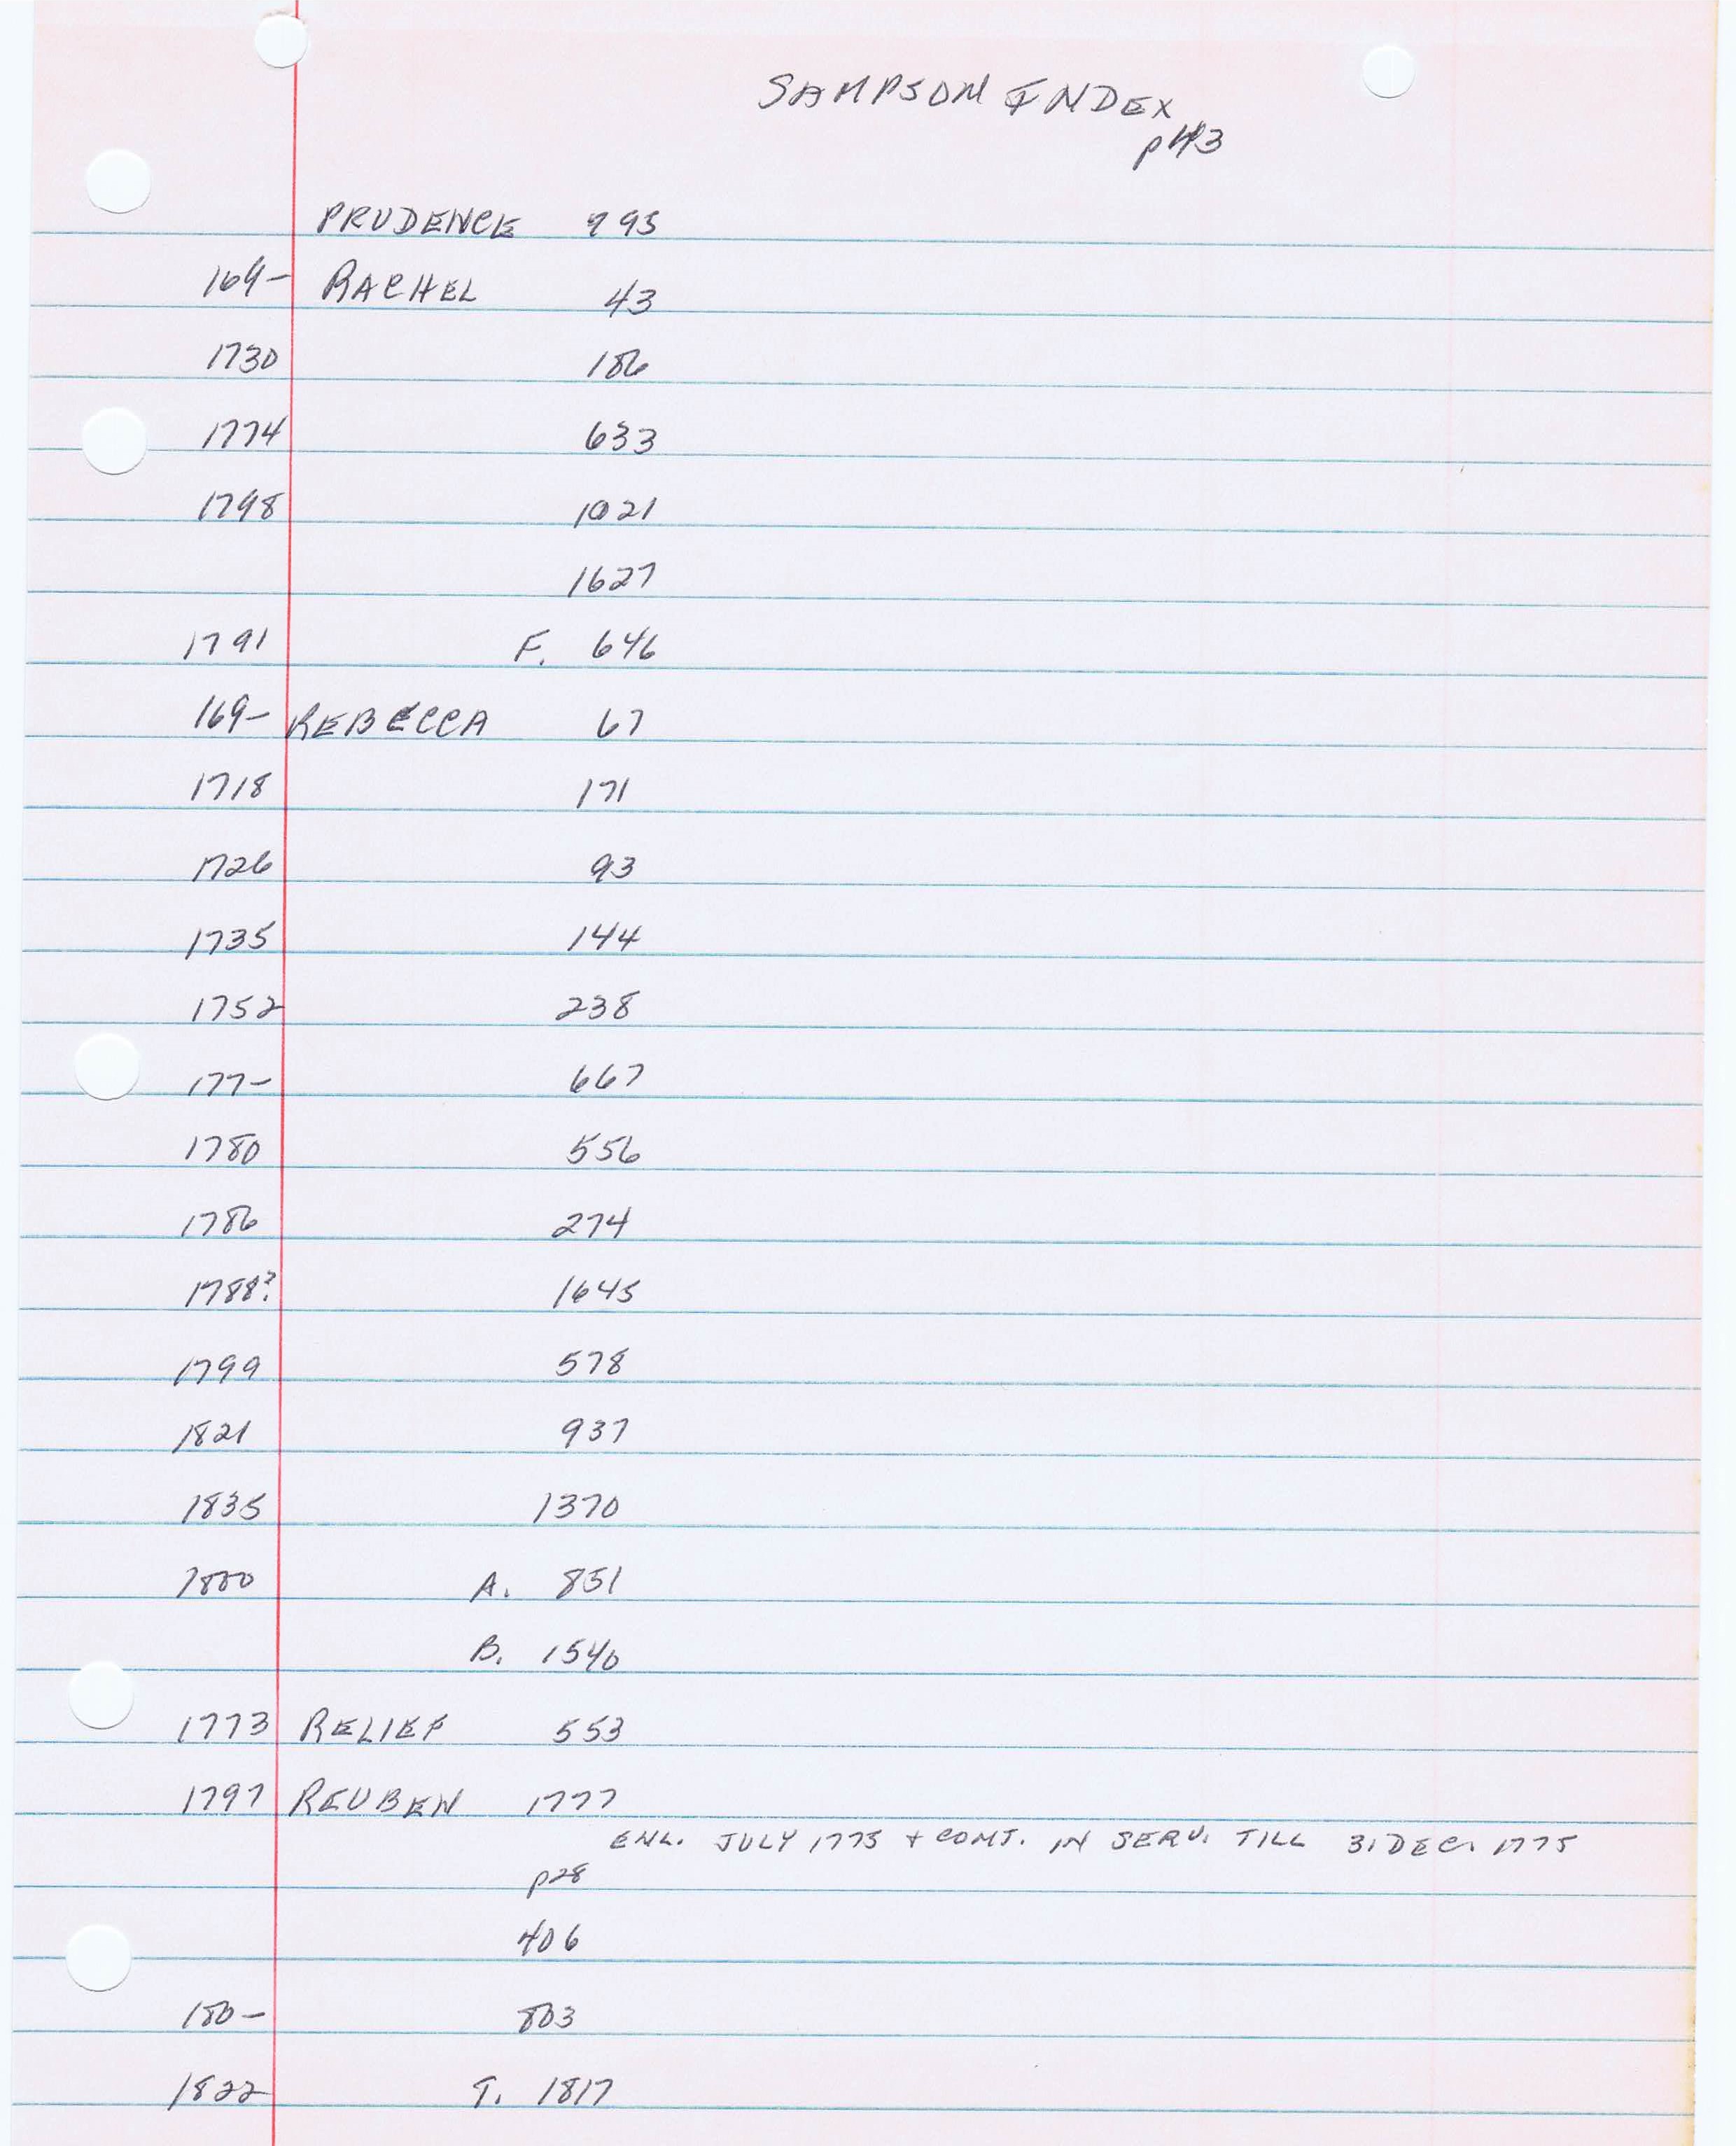 SAMPSON INDEX
p43
PRUDENCE 995
169- RACHEL 43
1730 186
1774 633
1798 1021
1627
1791 F. 646
169- REBECCA 67
1718 171
1726 93
1735 144
1752 238
177- 667
1780 556
1786 274
1788? 1645
1799 578
1821 937
1835 1370
1880 A. 851
B. 1540
1773 RELIEF 553
1797 REUBEN 1777
ENL. JULY 1775 + CONT. IN SERV. TILL 31 DEC. 1775
p28
406
180- 803
1822 T. 1817